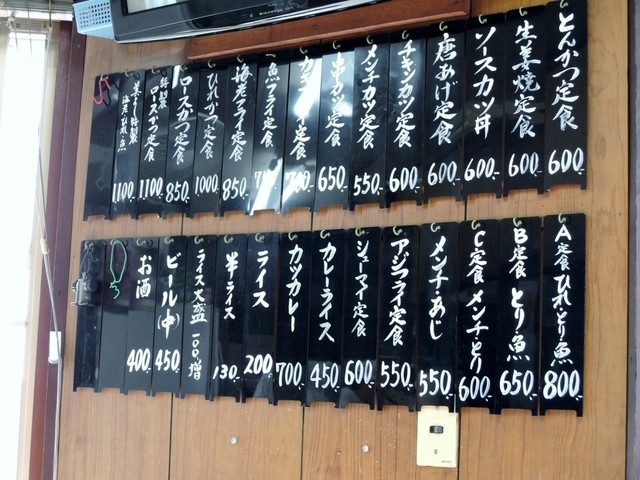 とんかつ定食 600.
生姜焼定食 600.
ソースカツ丼 600.
唐あげ定食 600.
チキンカツ定食 600.
メンチカツ定食 550.
串カツ定食 650.
定食
魚フライ定食
海老フライ定食 850.
ひれかつ定食 1000
ロースかつ定食 850.
特製ロースかつ定食 1100
1100
A定食 ひれ・とり・魚 800
B定食 とり・魚 650
C定食 メンチ・とり 600
メンチ・あじ 550
アジフライ定食 550
シューマイ定食 600
カレーライス 450
カツカレー 700
ライス 200
半ライス 130.
ライス大盛 一〇〇増
ビール(中) 450
お酒 400